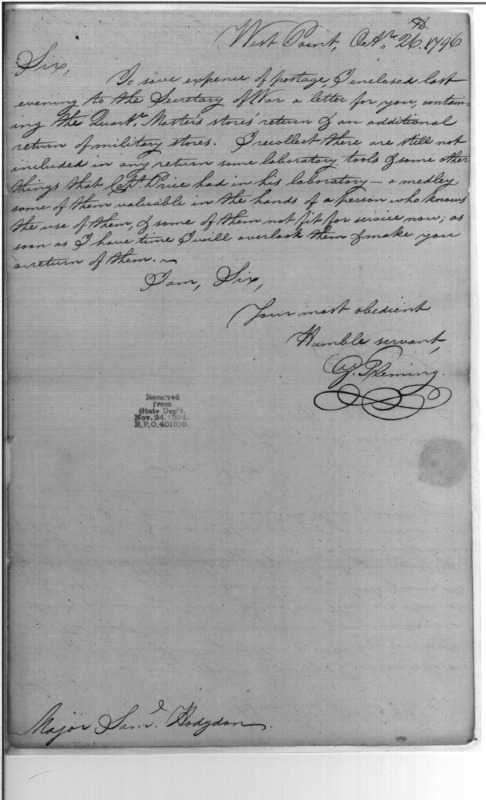 West Point, Octr. 26th. 1796
Sir,
To save expence of postage, I enclosed last
evening to the Secretary of War a letter for you, contain-
ing the Quartr. Master's stores' return & an additional
return of military stores. I recollect there are still not
included in any return some laboratory tools & some other
things that Cpt. Price had in his laboratory — a medley
some of them valuable in the hands of a person who knows
the use of them, & some of them not fit for service now; as
soon as I have time I will overlook them & make you
a return of them. ~
I am, Sir,
Your most obedient
Humble servant,
G. Fleming.
Received
from
State Dep't.
Nov. 24, 1894.
R.P.O. 401810.
Major Saml. Hodgdon.